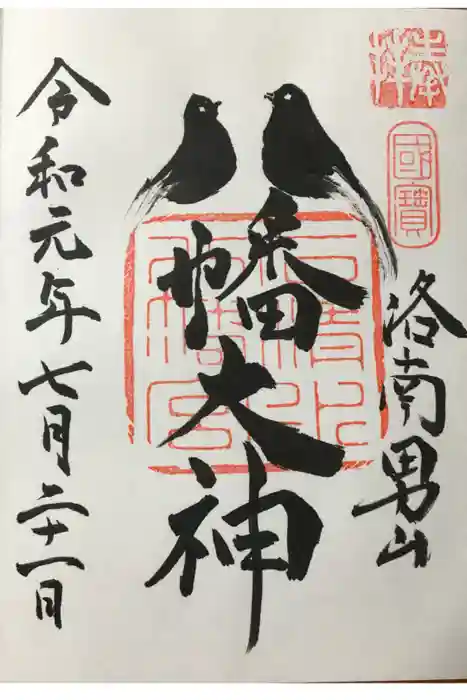 奉拝
國寶
洛南男山
八幡大神
石清水八幡宮
令和元年七月二十一日